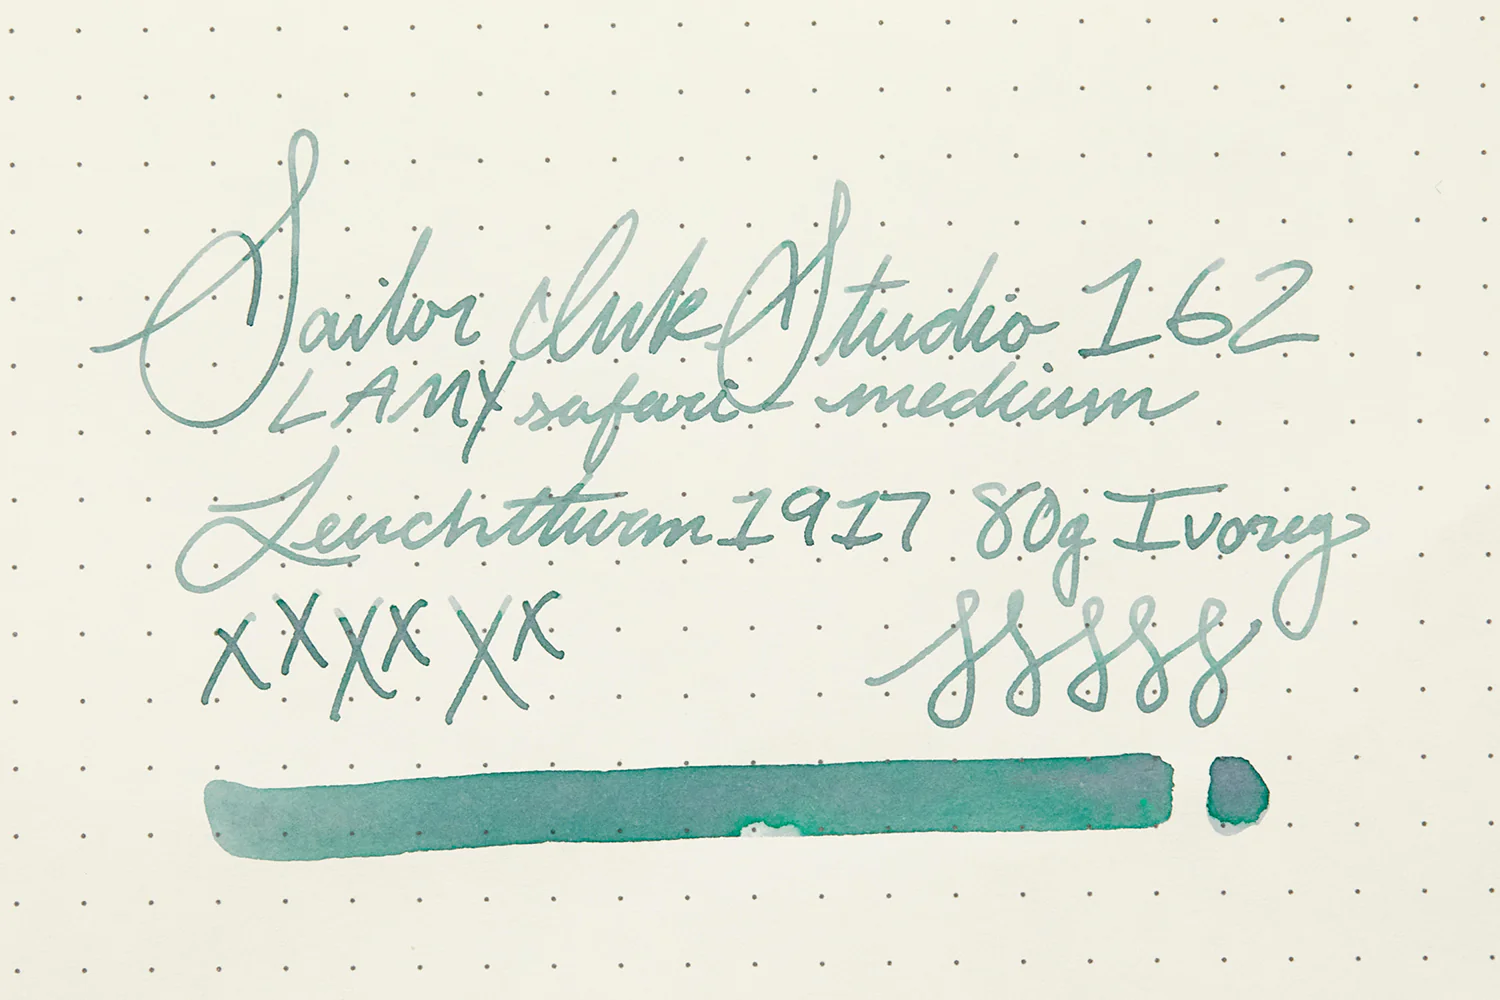 Sailor Ink Studio 162
LAMY safari medium
Leuchtturm1917 80g Ivory
xxxxxx sssss